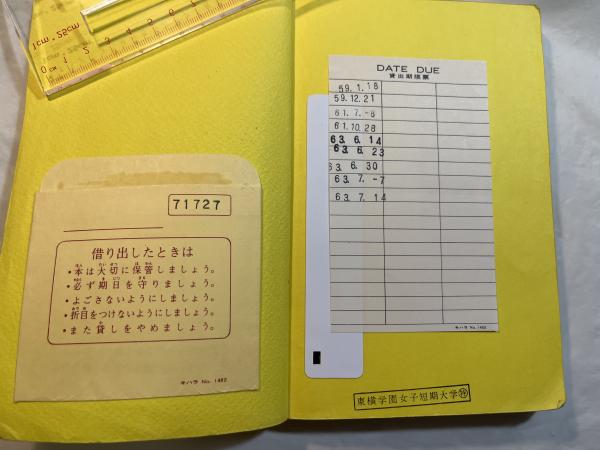 1cm. 25cm
1cm. 25cm
0 cm 1 2 3 4 5 6 7
71727
借り出したときは
・本は大切に保管しましょう。
・必ず期日を守りましょう。
・よごさないようにしましょう。
・折目をつけないようにしましょう。
・また貸しをやめましょう。
キハラ No. 1462
DATE DUE
貸出期限票
59. 1. 18
59. 12. 21
61. 7. -8
61. 10. 28
63. 6. 14
63. 6. 23
63. 6. 30
63. 7. -7
63. 7. 14
キハラ No. 1452
東横学園女子短期大学